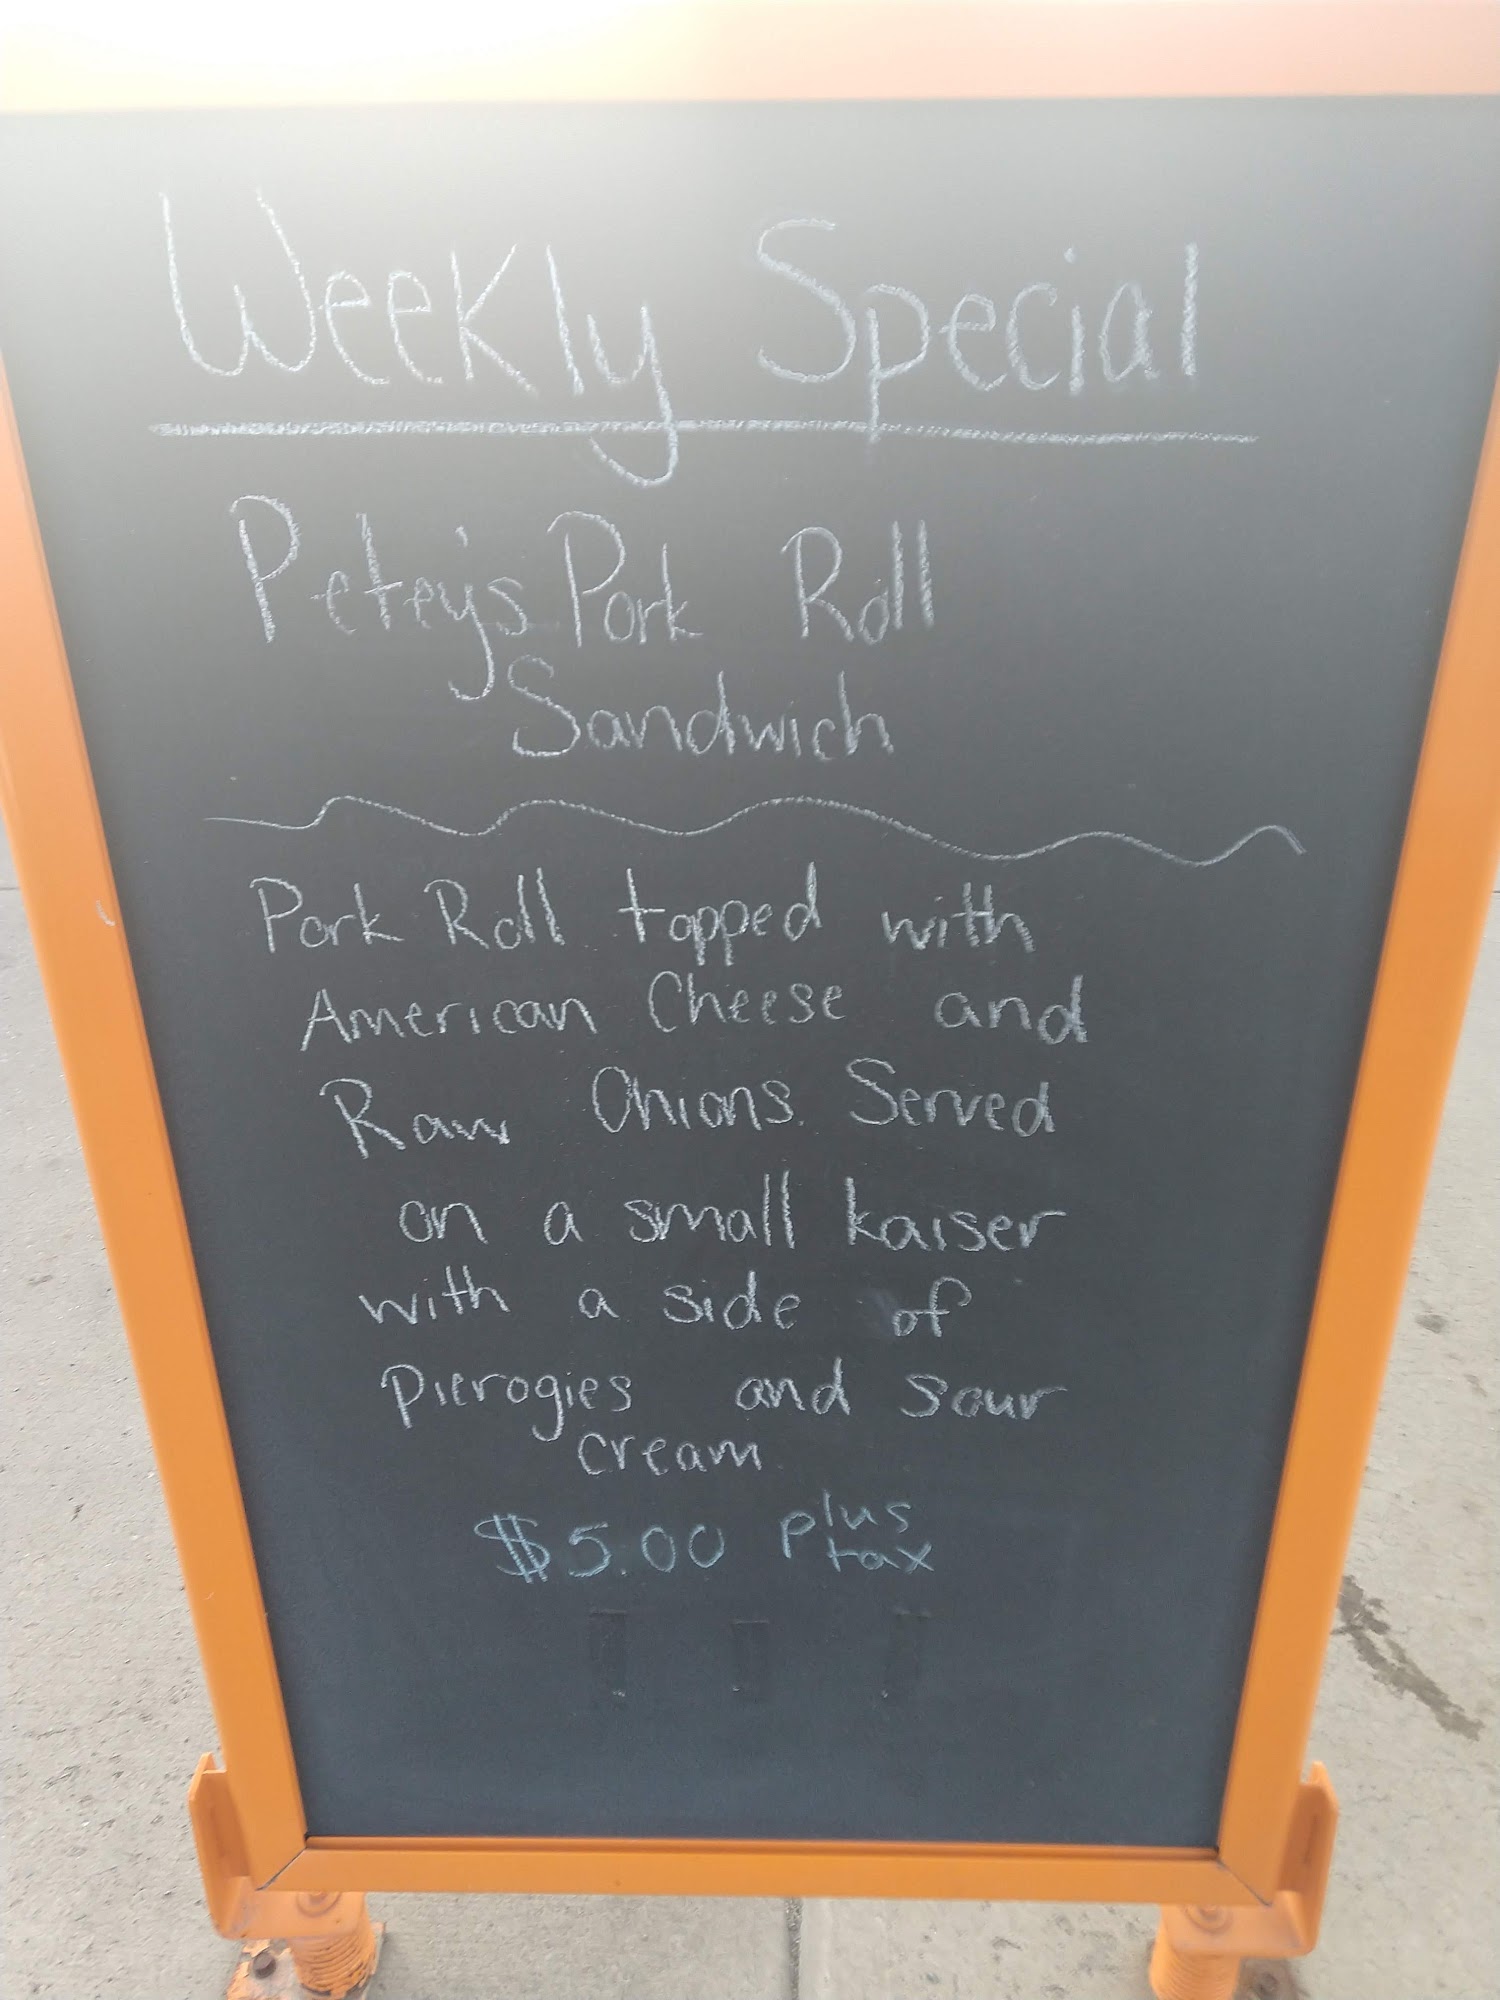 Weekly Special
Petey's Pork Roll
Sandwich
Pork Roll topped with
American Cheese and
Raw Onions. Served
on a small kaiser
with a side of
Pierogies and sour
cream.
$5.00 plus
tax